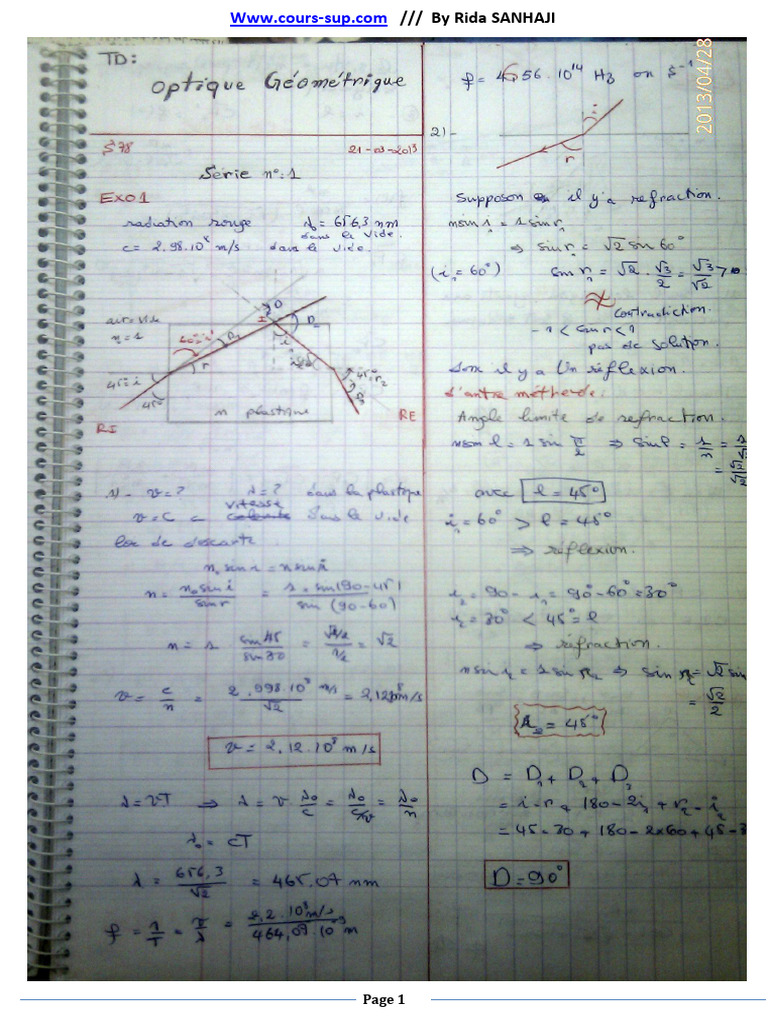 Www.cours-sup.com /// By Rida SANHAJI
TD:
Optique Géométrique
S78 21-03-2013
Série n°:1
EXO1
radiation rouge λ₀ = 656,3 nm
dans le vide.
c = 2.98.10⁸ m/s dans le vide.
air=vide
n=1
I
D
r
i
45=i
45°
n plastique
RI
RE
1) - v=? λ=? dans la plastique
vitesse
v=C = dans le vide
loi de descarte
n₀ sin i = n sin r
n = n₀ sin i / sin r = 1 × sin(90-45) / sin (90-60)
n = 1 sin 45 / sin 30 = √2/2 / 1/2 = √2
v = c/n = 2,998.10⁸ m/s / √2 = 2,12.10⁸ m/s
v = 2,12.10⁸ m/s
λ = vT ⇒ λ = v λ₀/c = λ₀/c/v = λ₀/n
λ₀ = cT
λ = 656,3/√2 = 465,07 nm
f = 1/T = v/λ = 2,2.10⁸ m/s / 464,07.10⁻⁹ m
f = 4,56.10¹⁴ Hz ou s⁻¹
2013/04/28
2) -
i
r
Supposon il y'a refraction.
n sin i₁ = 1 sin r₁
⇒ sin r₁ = √2 sin 60°
(i₁ = 60°) sin r₁ = √2 . √3/2 = √3/√2 >
contradiction.
-1 < sin r < 1
pas de solution.
Donc il y a Un réflexion.
d'autre méthode:
Angle limite de refraction.
n sin l = 1 sin π/2 ⇒ sin l = 1/n = 1/√2
= √2/2
avec l = 45°
i₁ = 60° > l = 45°
⇒ réflexion.
i₂ = 90 - i₁ = 90° - 60° = 30°
i₂ = 30° < 45° = l
⇒ réfraction.
n sin i₂ = 1 sin r₂ ⇒ sin r₂ = √2 sin
= √2/2
r₂ = 45°
D = D₁ + D₂ + D₃
= i - r + 180 - 2i₁ + r₂ - i₂
= 45 - 30 + 180 - 2x60 + 45 - 3
D = 90°
Page 1